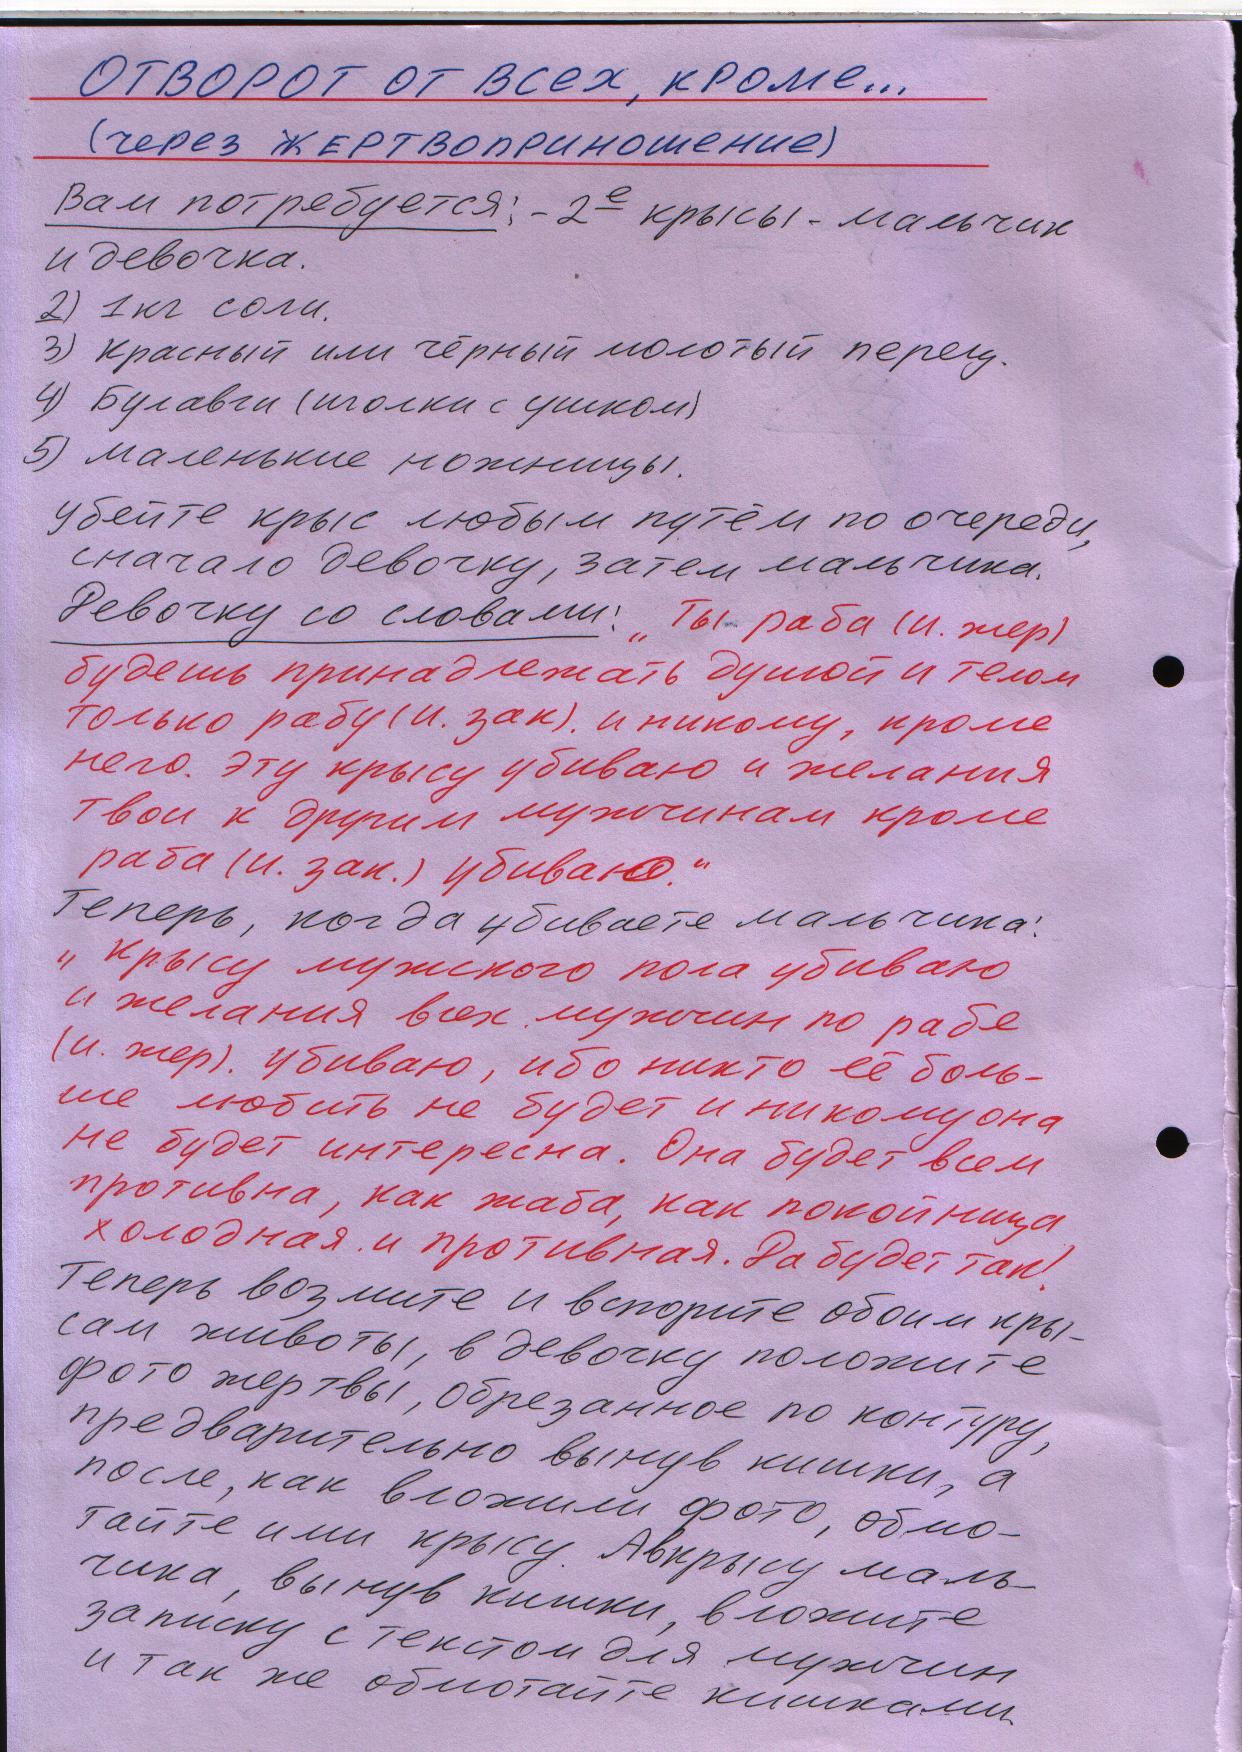 ОТВОРОТ ОТ ВСЕХ, КРОМЕ...
(через ЖЕРТВОПРИНОШЕНИЕ)
Вам потребуется: - 2е крысы - мальчик
и девочка.
2) 1кг соли.
3) Красный или чёрный молотый перец.
4) Булавки (иголки с ушком)
5) маленькие ножницы.
Убейте крыс любым путём по очереди,
сначало девочку, затем мальчика.
Девочку со словами: „Ты раба (и. жер)
будешь принадлежать душой и телом
только рабу (и. зак). и никому, кроме
него. Эту крысу убиваю и желания
твои к другим мужчинам кроме
раба (и. зак.) убиваю."
Теперь, когда убиваете мальчика:
„Крысу мужского пола убиваю
и желания всех мужчин по рабе
(и. жер). убиваю, ибо никто её боль-
ше любить не будет и никому она
не будет интересна. Она будет всем
противна, как жаба, как покойница
холодная и противная. Да будет так!
Теперь возмите и вспорите обоим кры-
сам животы, в девочку положите
фото жертвы, обрезанное по контуру,
предварительно вынув кишки, а
после, как вложили фото, обмо-
тайте ими крысу. А в крысу маль-
чика, вынув кишки, вложите
записку с текстом для мужчин
и так же обмотайте кишками